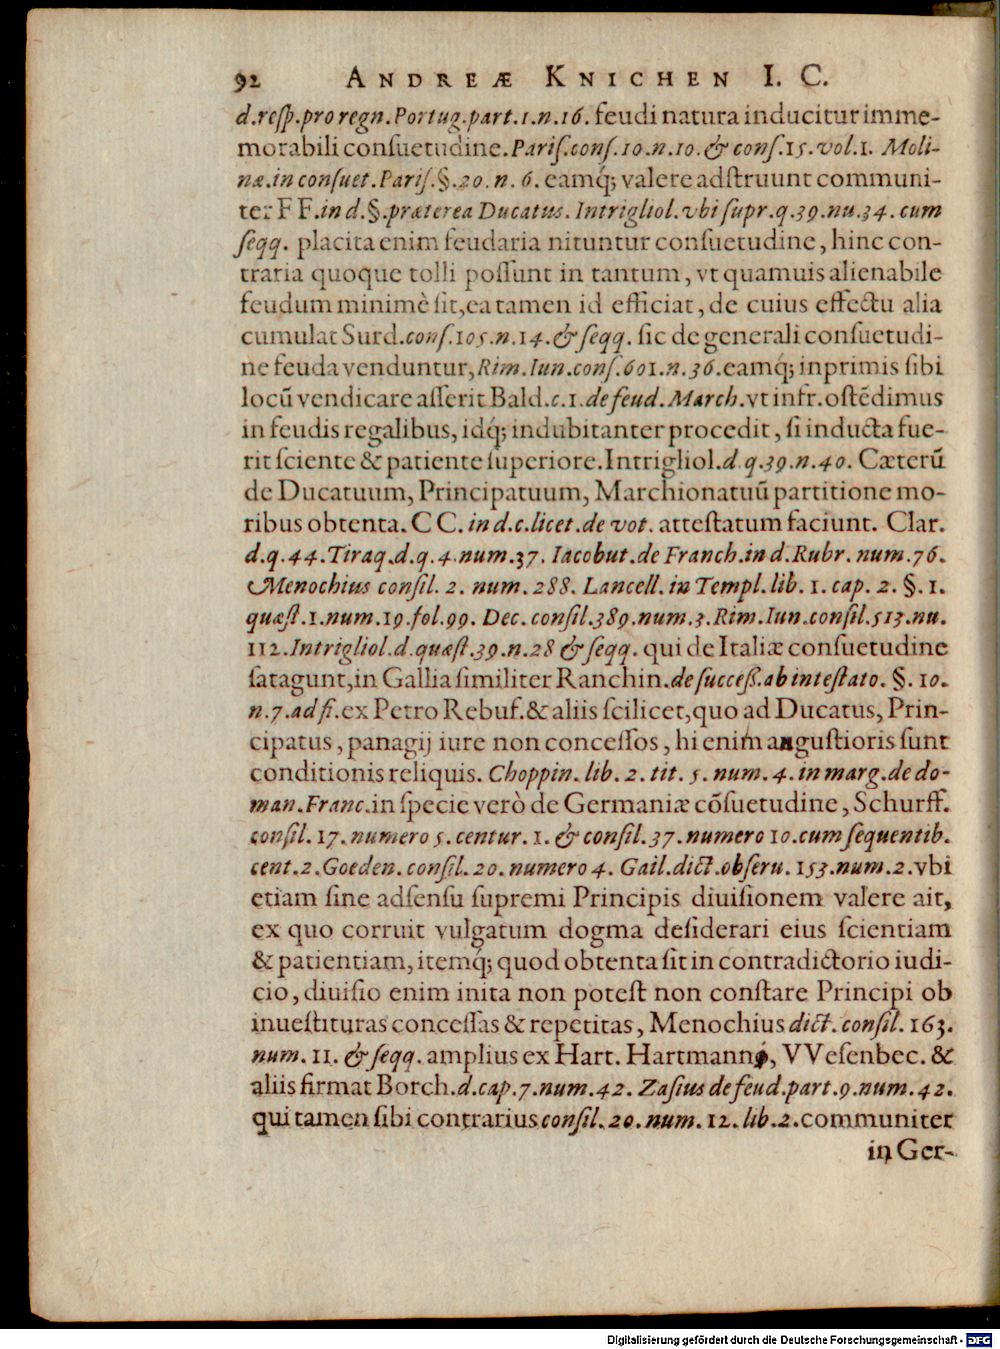 92 ANDREÆ KNICHEN I. C.
d.resp.pro regn.Portug.part.1.n.16. feudi natura inducitur imme-
morabili consuetudine.Paris.cons.10.n.10.& cons.15.vol.1. Moli-
næ.in consuet.Paris.§.20.n.6. eamq́; valere adstruunt communi-
ter F F.in d.§.præterea Ducatus. Intrigliol.vbi supr.q.39.nu.34.cum
seqq. placita enim feudaria nituntur consuetudine, hinc con-
traria quoque tolli possunt in tantum, vt quamuis alienabile
feudum minimè sit,ea tamen id efficiat, de cuius effectu alia
cumulat Surd.cons.105.n.14.& seqq. sic de generali consuetudi-
ne feuda venduntur,Rim.Iun.cons.601.n.36.eamq́; inprimis sibi
locũ vendicare asserit Bald.c.1.de feud.March.vt infr.ostẽdimus
in feudis regalibus, idq́; indubitanter procedit, si inducta fue-
rit sciente & patiente superiore.Intrigliol.d.q.39.n.40. Cæterũ
de Ducatuum, Principatuum, Marchionatuũ partitione mo-
ribus obtenta. C C. in d.c.licet.de vot. attestatum faciunt. Clar.
d.q.44.Tiraq.d.q.4.num.37. Iacobut.de Franch.in d.Rubr. num.76.
Menochius consil. 2. num. 288. Lancell. in Templ.lib. 1. cap. 2. §. 1.
quæst.1.num.19.fol.99. Dec. consil.389.num.3.Rim.Iun.consil.513.nu.
112.Intrigliol.d.quæst.39.n.28 & seqq. qui de Italiæ consuetudine
satagunt,in Gallia similiter Ranchin.de success.ab intestato. §. 10.
n.7.ad fi.ex Petro Rebuf.& aliis scilicet,quo ad Ducatus, Prin-
cipatus, panagij iure non concessos, hi enim angustioris sunt
conditionis reliquis. Choppin. lib. 2. tit. 5. num. 4. in marg.de do-
man.Franc.in specie verò de Germaniæ cõsuetudine, Schurff.
consil. 17. numero 5. centur. 1. & consil.37.numero 10.cum sequentib.
cent.2.Goeden. consil. 20. numero 4. Gail.dict.obseru. 153.num.2.vbi
etiam sine adsensu supremi Principis diuisionem valere ait,
ex quo corruit vulgatum dogma desiderari eius scientiam
& patientiam, itemq́; quod obtenta sit in contradictorio iudi-
cio, diuisio enim inita non potest non constare Principi ob
inuestituras concessas & repetitas, Menochius dict. consil. 163.
num. 11. & seqq. amplius ex Hart. Hartmanno, VVesenbec. &
aliis firmat Borch.d.cap.7.num.42. Zasius de feud.part.9.num.42.
qui tamen sibi contrarius consil.20.num.12.lib.2.communiter
in Ger-
Digitalisierung gefördert durch die Deutsche Forschungsgemeinschaft - DFG